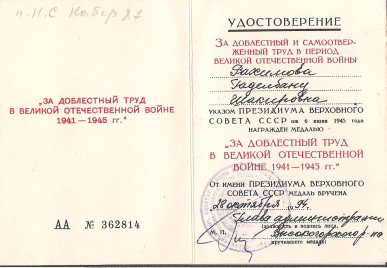 п. Н. С.
"ЗА ДОБЛЕСТНЫЙ ТРУД
В ВЕЛИКОЙ ОТЕЧЕСТВЕННОЙ ВОЙНЕ
1941—1945 гг."
АА № 362814
УДОСТОВЕРЕНИЕ
ЗА ДОБЛЕСТНЫЙ И САМООТВЕР-
ЖЕННЫЙ ТРУД В ПЕРИОД
ВЕЛИКОЙ ОТЕЧЕСТВЕННОЙ ВОЙНЫ
Рахимова
Шакировна
УКАЗОМ ПРЕЗИДИУМА ВЕРХОВНОГО
СОВЕТА СССР от 6 июня 1945 года
НАГРАЖДЕН МЕДАЛЬЮ
"ЗА ДОБЛЕСТНЫЙ ТРУД
В ВЕЛИКОЙ ОТЕЧЕСТВЕННОЙ
ВОЙНЕ 1941—1945 гг."
ОТ ИМЕНИ ПРЕЗИДИУМА ВЕРХОВНОГО
СОВЕТА СССР МЕДАЛЬ ВРУЧЕНА
"28 октября 1994 г.
Глава администрации
(должность и подпись лица,
М. П. Высокогорского р-на
вручившего медаль)